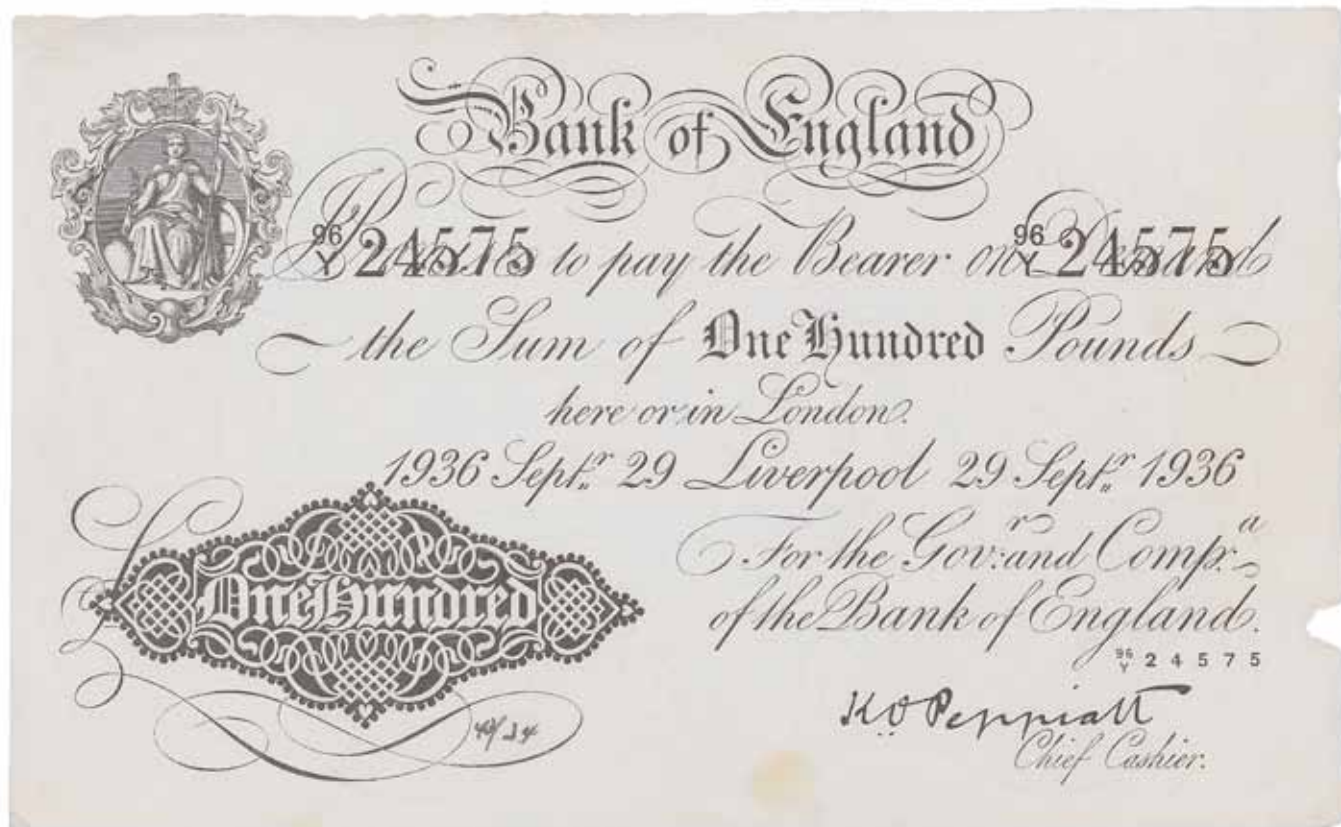 Bank of England
96
Y 24575 to pay the Bearer on 96
Y 24575
the Sum of One Hundred Pounds
here or in London.
1936 Septr 29 Liverpool 29 Septr 1936
For the Govr: and Compa
of the Bank of England.
96
Y 24575
One Hundred
K.O. Peppiatt
Chief Cashier.